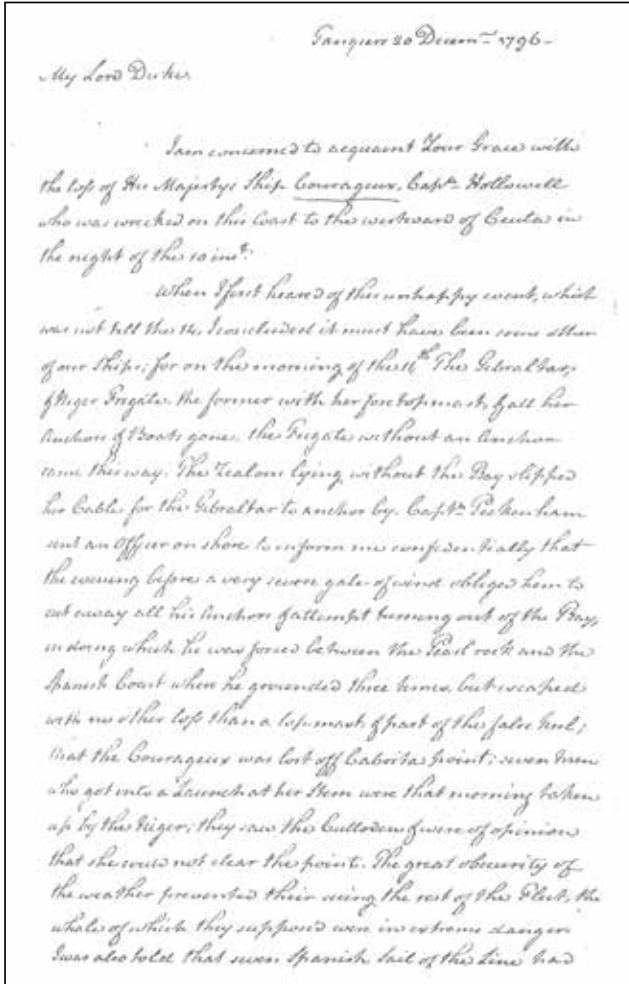 Tangiers 20 Decemr. 1796 -
My Lord Duke
I am concerned to acquaint Your Grace with
the loss of His Majestys Ship Courageux, Captn. Hollowell
who was wrecked on this Coast to the westward of Ceuta in
the night of the 10 inst.
When I first heard of this unhappy event, which
was not till the 14, I concluded it must have been some other
of our Ships; for on the morning of the 11th The Gibraltar,
& Niger Frigate, the former with her fore topmast, & all her
Anchors & Boats gone; the Frigate without an Anchor
came this way. The Zealous lying without the Bay slipped
her Cable for the Gibraltar to anchor by. Captn. Peckenham
sent an Officer on shore to inform me confidentially that
the evening before a very severe gale of wind obliged him to
cut away all his Anchors & attempt turning out of the Bay,
in doing which he was forced between the Pearl rock and the
Spanish Coast where he grounded three times, but escaped
with no other loss than a topmast, & part of the false keel;
that the Courageux was lost off Cabrita point; seven men
who got into a Launch at her Stern were that morning taken
up by the Niger; they saw the Culloden & were of opinion
that she could not clear the point. The great obscurity of
the weather prevented their seeing the rest of the Fleet, the
whole of which they supposed were in extreme danger
I was also told that seven Spanish Sail of the Line had